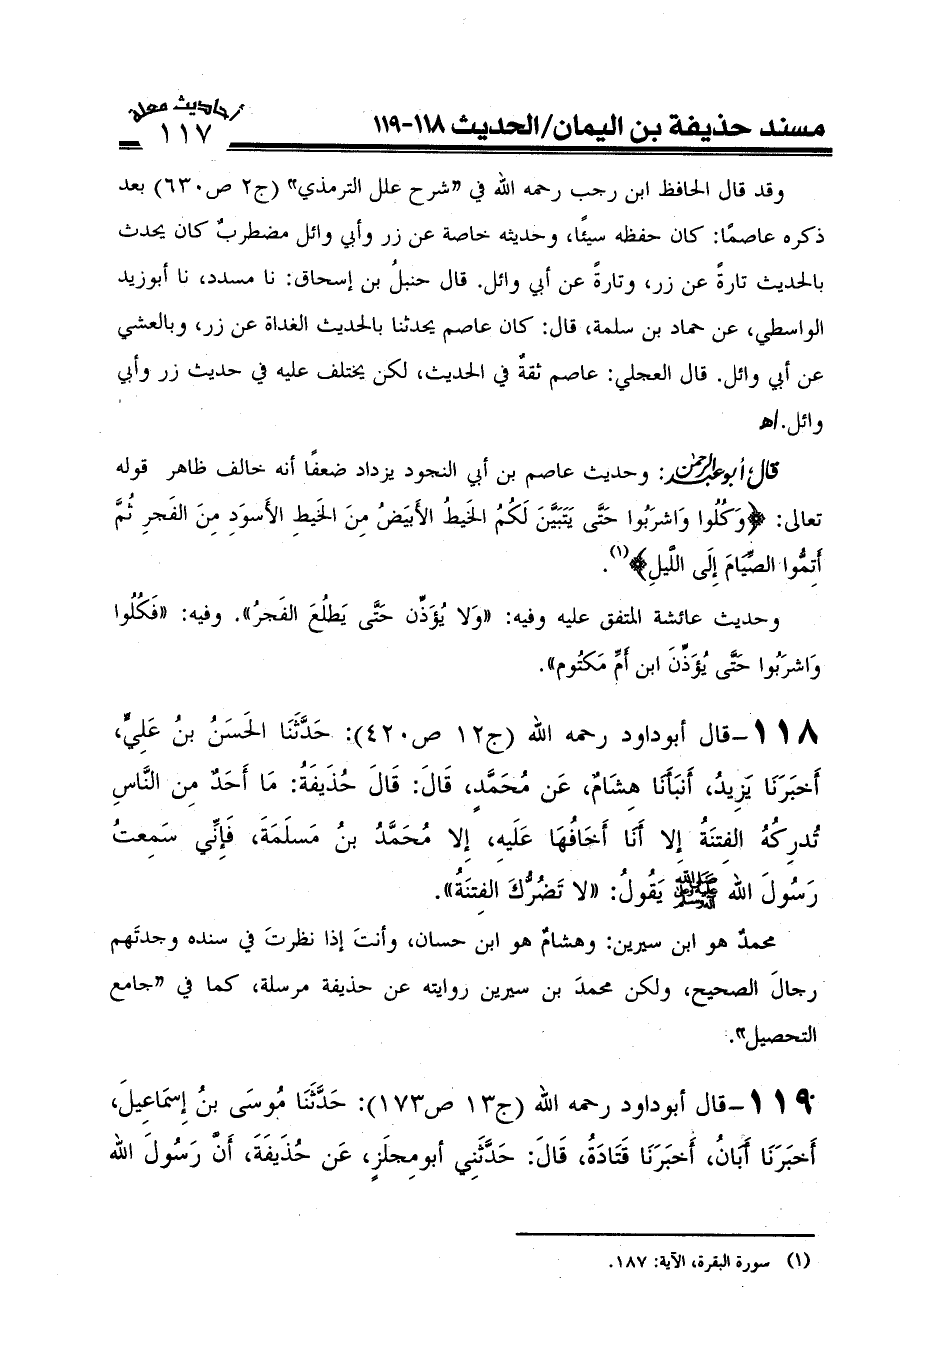 مسند حذيفة بن اليمان/الحديث ١١٨-١١٩
أحاديث معلة
١١٧
وقد قال الحافظ ابن رجب رحمه الله في «شرح علل الترمذي» (ج٢ ص٦٣٠) بعد
ذكره عاصمًا: كان حفظه سيئًا، وحديثه خاصة عن زر وأبي وائل مضطربٌ كان يحدث
بالحديث تارةً عن زر، وتارةً عن أبي وائل. قال حنبلُ بن إسحاق: نا مسدد، نا أبوزيد
الواسطي، عن حماد بن سلمة، قال: كان عاصم يحدثنا بالحديث الغداة عن زر، وبالعشي
عن أبي وائل. قال العجلي: عاصم ثقةٌ في الحديث، لكن يختلف عليه في حديث زر وأبي
وائل.اﻫ
قال أبو عبد الرحمن: وحديث عاصم بن أبي النجود يزداد ضعفًا أنه خالف ظاهر قوله
تعالى: ﴿وَكُلُوا وَاشرَبُوا حَتَّى يَتَبَيَّنَ لَكُمُ الخَيطُ الأَبيَضُ مِنَ الخَيطِ الأَسوَدِ مِنَ الفَجرِ ثُمَّ
أَتِمُّوا الصِّيَامَ إِلَى اللَّيلِ﴾(١).
وحديث عائشة المتفق عليه وفيه: «وَلا يُؤَذِّن حَتَّى يَطلُعَ الفَجرُ». وفيه: «فَكُلُوا
وَاشرَبُوا حَتَّى يُؤَذِّنَ ابن أُمِّ مَكتُوم».
١١٨-قال أبوداود رحمه الله (ج١٢ ص٤٢٠): حَدَّثَنَا الحَسَنُ بنُ عَلِيٍّ،
أَخبَرَنَا يَزِيدُ، أَنبَأَنَا هِشَامٌ، عَن مُحَمَّدٍ، قَالَ: قَالَ حُذَيفَةُ: مَا أَحَدٌ مِن النَّاسِ
تُدرِكُهُ الفِتنَةُ إِلا أَنَا أَخَافُهَا عَلَيهِ، إِلا مُحَمَّدُ بنُ مَسلَمَةَ، فَإِنِّي سَمِعتُ
رَسُولَ الله ﷺ يَقُولُ: «لا تَضُرُّكَ الفِتنَةُ».
محمدٌ هو ابن سيرين: وهشامٌ هو ابن حسان، وأنتَ إذا نظرتَ في سنده وجدتَهم
رجالَ الصحيح، ولكن محمدَ بن سيرين روايته عن حذيفة مرسلة، كما في «جامع
التحصيل».
١١٩-قال أبوداود رحمه الله (ج١٣ ص١٧٣): حَدَّثَنَا مُوسَى بنُ إِسمَاعِيلَ،
أَخبَرَنَا أَبَانُ، أَخبَرَنَا قَتَادَةُ، قَالَ: حَدَّثَنِي أبومِجلَزٍ، عَن حُذَيفَةَ، أَنَّ رَسُولَ الله
(١) سورة البقرة، الآية: ١٨٧.